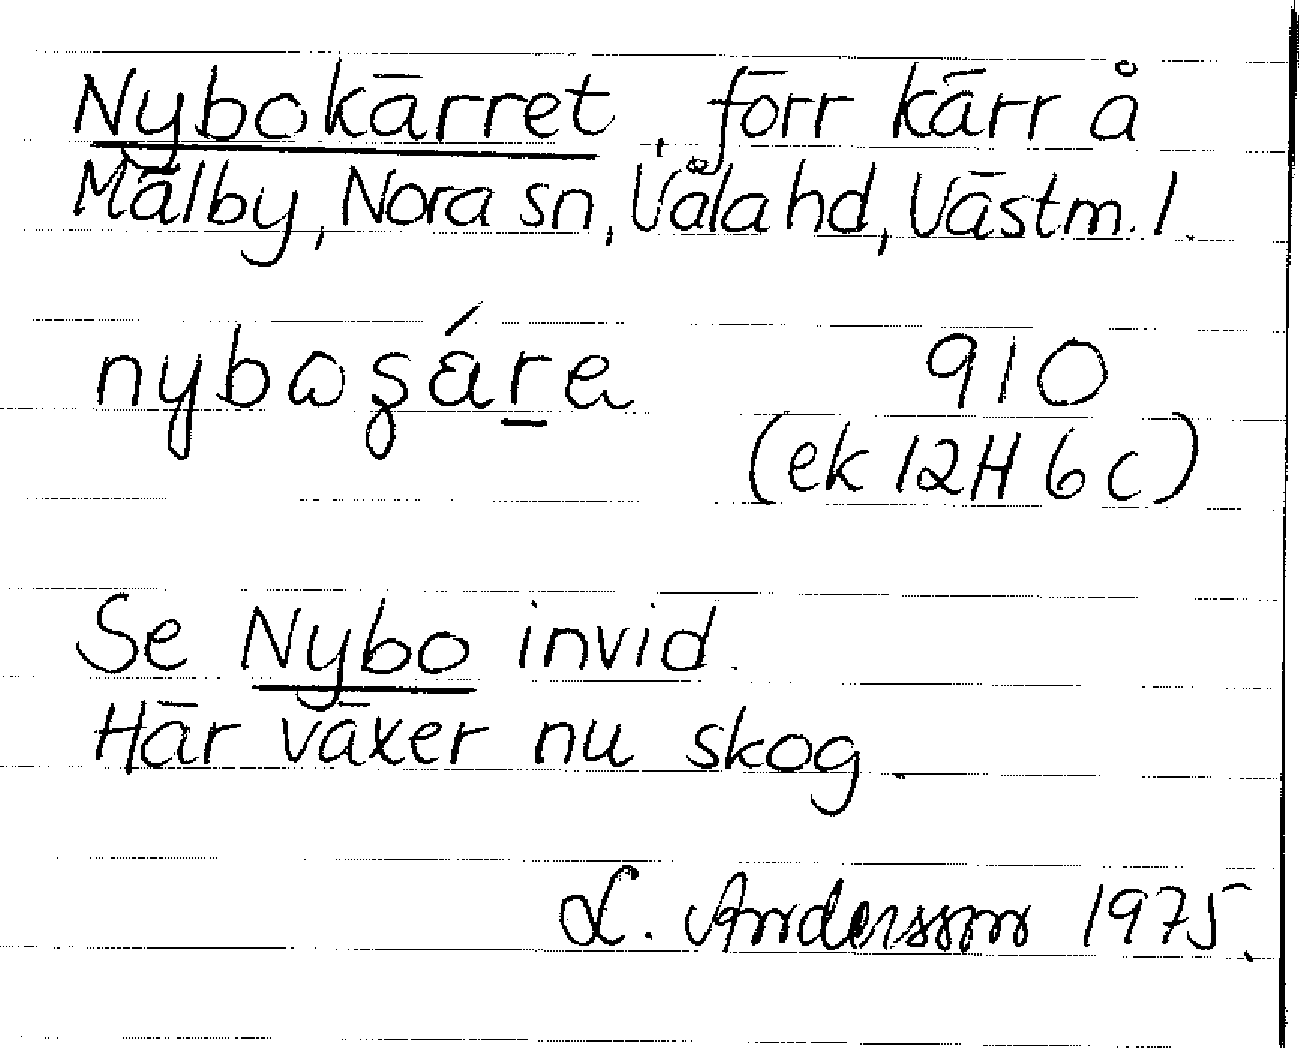 Nybokärret, förr kärr å
Mälby, Nora sn, Våla hd, Västm. l.
910
(ek 12H 6c)
Se Nybo invid.
Här växer nu skog.
L. Andersson 1975.